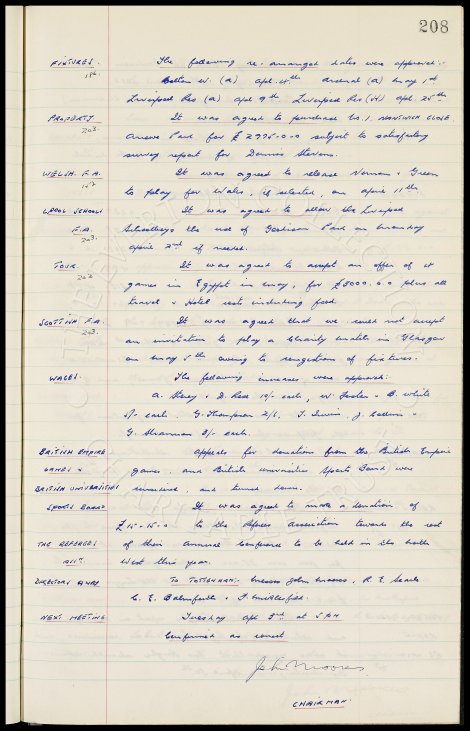 208
FIXTURES. The following re-arranged dates were approved:-
196. Bolton W. (A) Apl. 4th Arsenal (A) May 1st
Liverpool Res (A) Apl 9th Liverpool Res (H) Apl. 25th
PROPERTY It was agreed to purchase No. 1. NANTWICH CLOSE
203. Arrowe Park for £2975-0-0 subject to satisfactory
survey report for Dennis Stevens.
WELSH. F.A. It was agreed to release Vernon & Green
to play for Wales, if selected, on April 11th.
LPOOL SCHOOLS It was agreed to allow the Liverpool
F.A. Schoolboys the use of Goodison Park on Monday
203. April 2nd if needed.
TOUR. It was agreed to accept an offer of 4
202 games in Egypt in May, for £3000.0.0 plus all
travel & Hotel costs including food
SCOTTISH F.A. It was agreed that we could not accept
203. an invitation to play a Charity match in Glasgow
on May 5th owing to congestion of fixtures.
WAGES. The following increases were approved:
A. & D. 10/- each, W. & B. White
5/- each. G. Thompson 2/6, T. J. &
G. Sharman 2/- each.
BRITISH EMPIRE Appeals for donations from the British Empire
GAMES & games, and British Universities Sports Board, were
BRITISH UNIVERSITIES considered, and turned down.
SPORTS BOARD It was agreed to make a donation of
£15-15-0 to the Referees Association towards the cost
THE REFEREES of their Annual Conference to be held in the North
ASSN. West this year.
DIRECTORS AWAY. To TOTTENHAM:- Messrs John Moores, R. E. Searle
C. E. Balmforth & F. Micklesfield.
NEXT MEETING Tuesday Apl 3rd at 5 PM
Confirmed as correct
John Moores
CHAIRMAN.